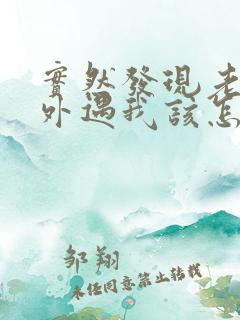 實然發現老
外遇我該怎
邹翔
未经同意禁止转载